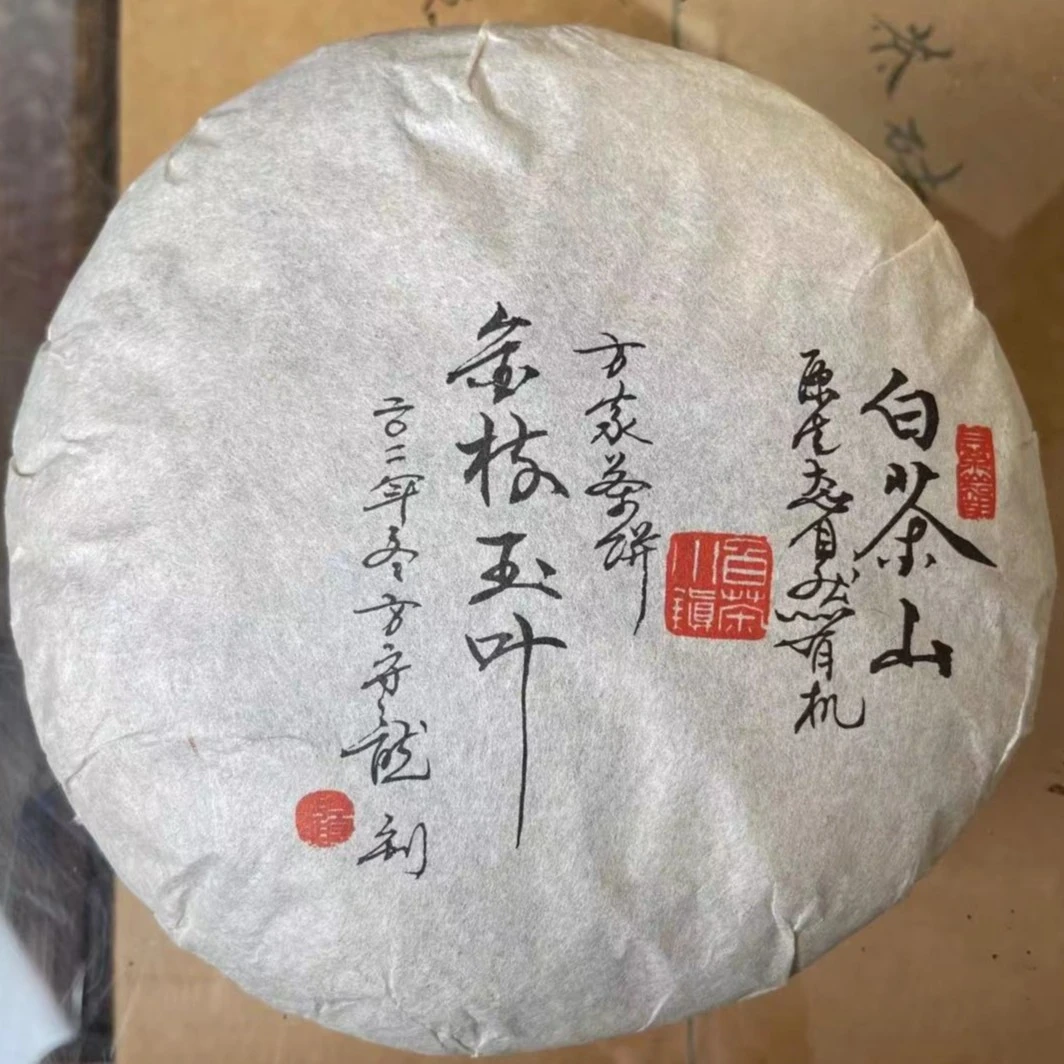 白茶山
原生态自然有机
百茶
小镇
方家茶饼
金枝玉叶
二〇二年冬方守龙制